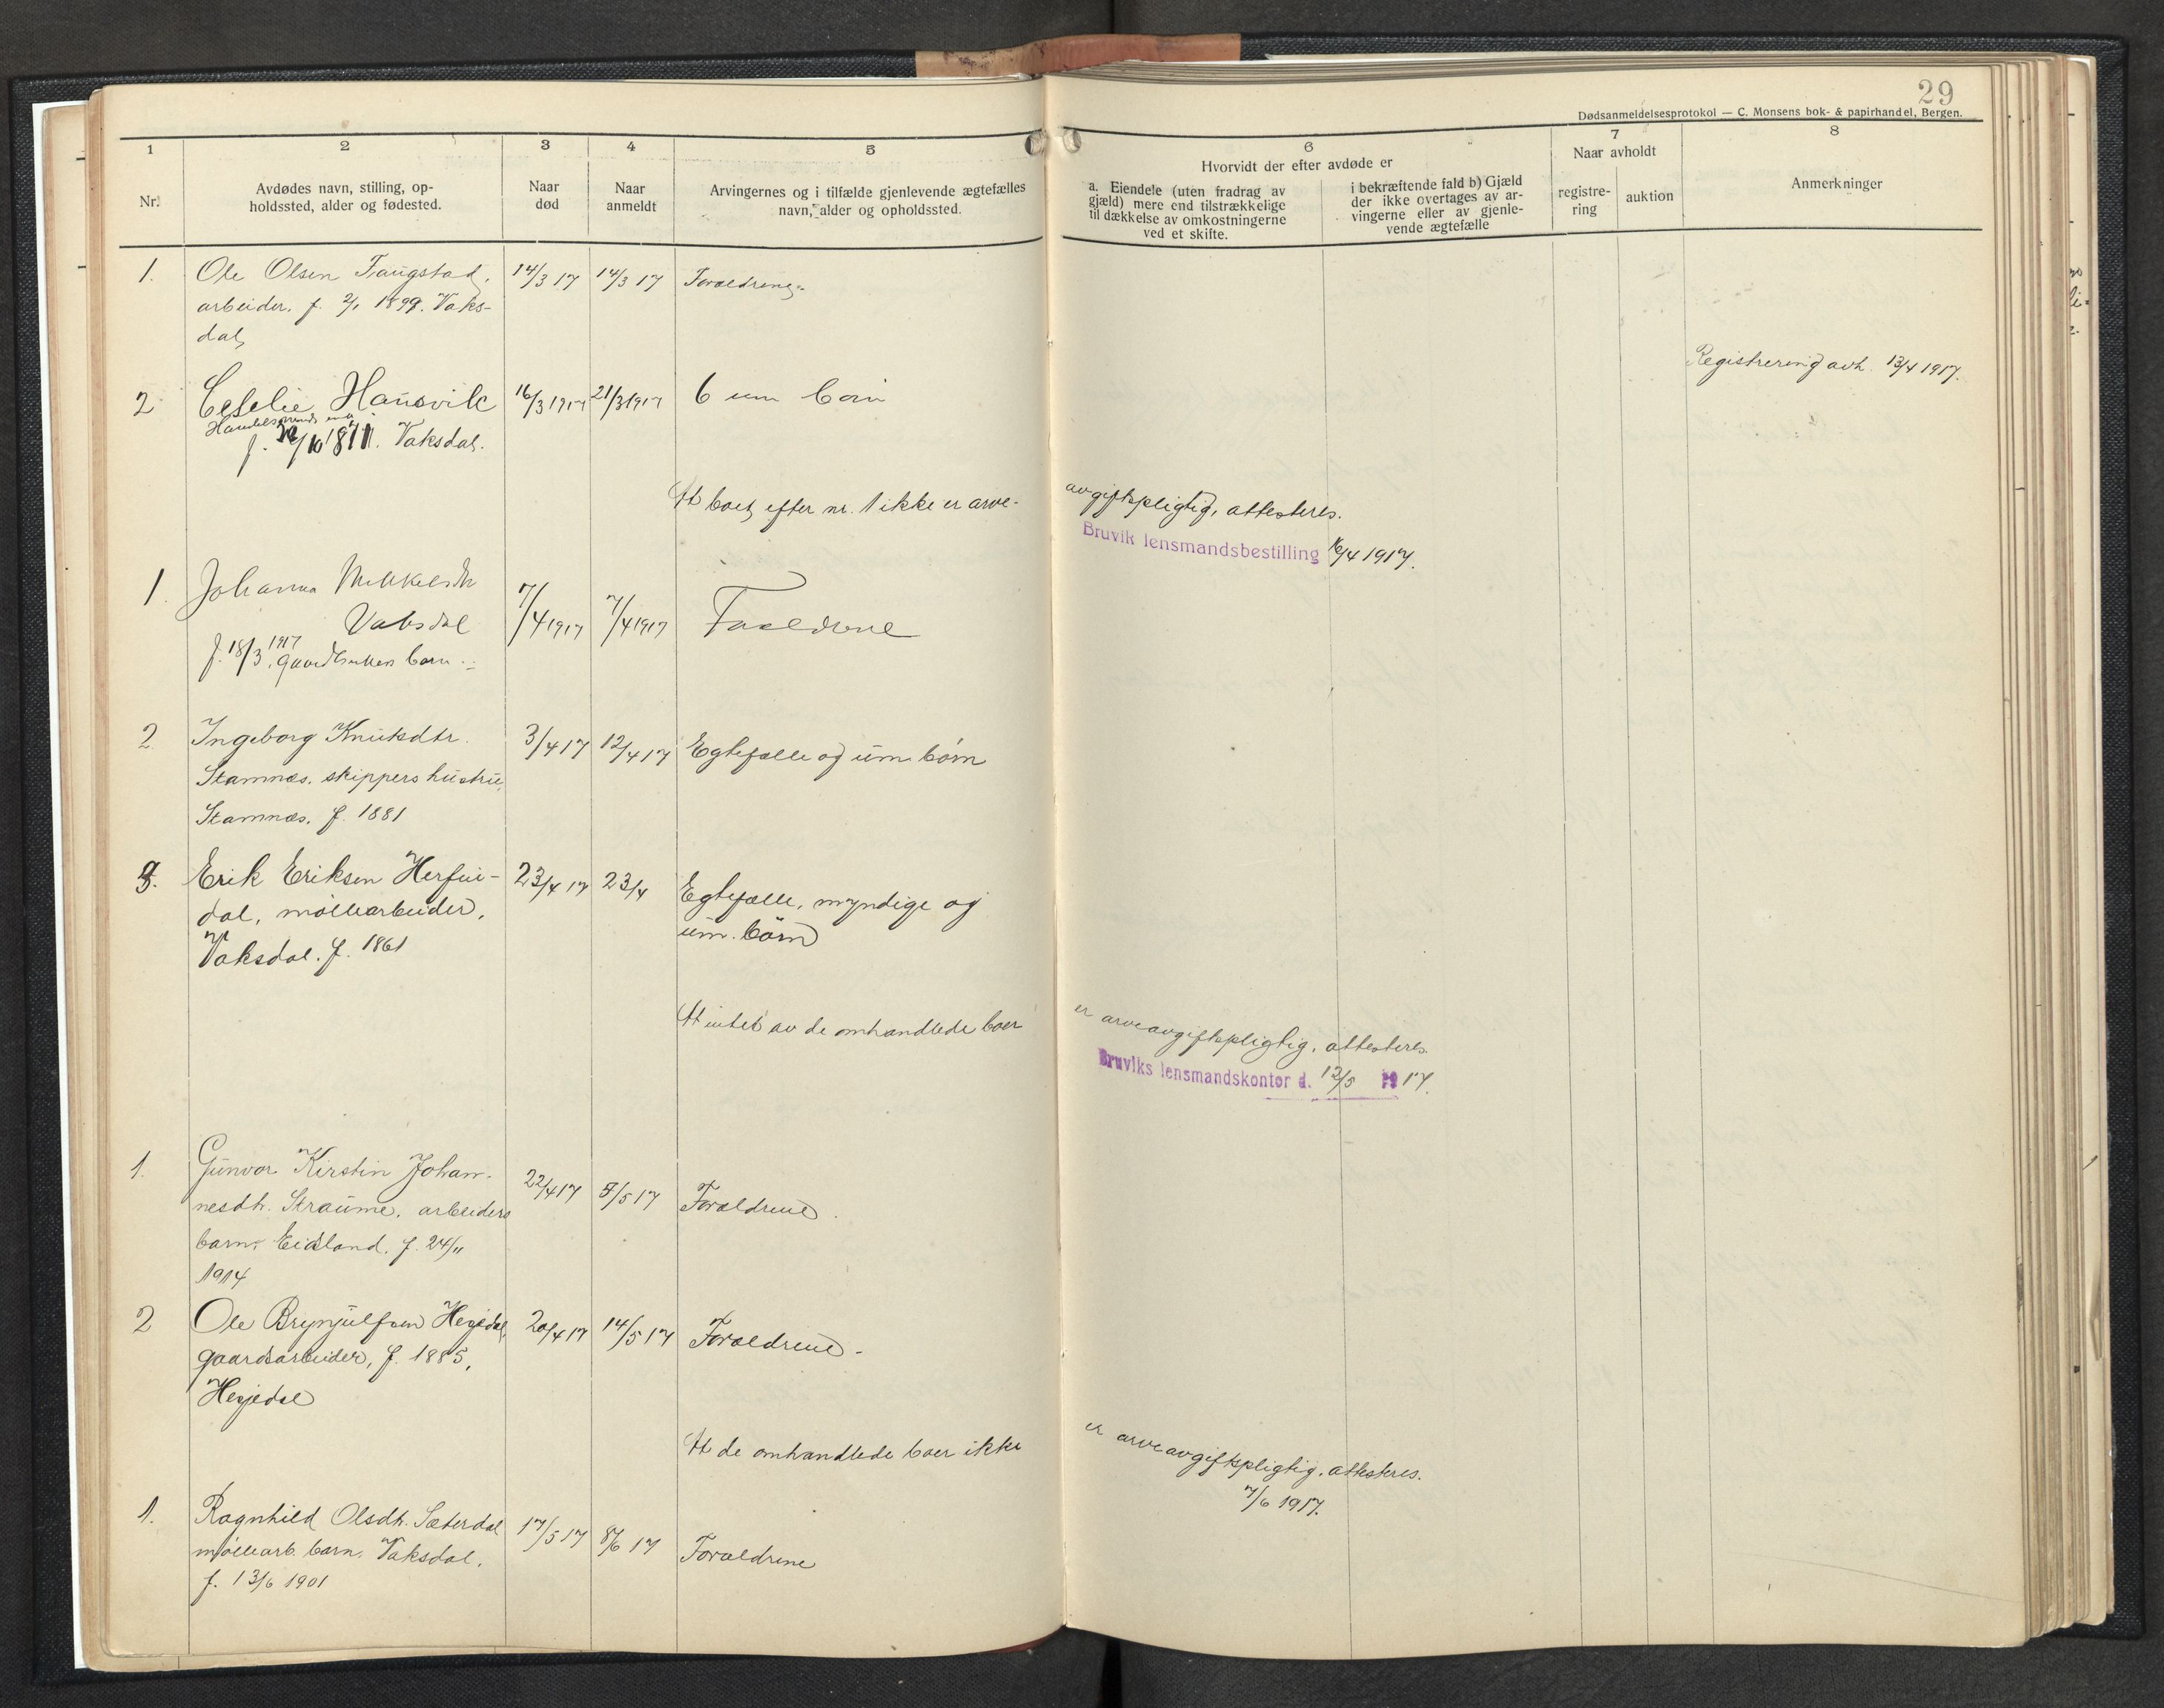 29
Dødsanmeldelsesprotokol — C. Monsens bok- & papirhandel, Bergen.
1
2
3
4
5
6
7
8
Nr.
Avdødes navn, stilling, op-
holdssted, alder og fødested.
Naar
død
Naar
anmeldt
Arvingernes og i tilfælde gjenlevende ægtefælles
navn, alder og opholdssted.
Hvorvidt der efter avdøde er
a. Eiendele (uten fradrag av
gjæld) mere end tilstrækkelige
til dækkelse av omkostningerne
ved et skifte.
i bekræftende fald b) Gjæld
der ikke overtages av ar-
vingerne eller av gjenle-
vende ægtefælle
Naar avholdt
registre-
ring
auktion
Anmerkninger
1. Ole Olsen 14/3 17 14/3 17 Forældrene
arbeider. f. 2/1 1899. Vaks-
dal
Registrering avh. 13/4 1917.
2 Hansvik 16/3 1917 21/3 1917 6 um børn
f. Vaksdal.
At boet efter nr. 1 ikke er arve-
avgiftspligtig, attesteres.
Bruvik lensmandsbestilling 16/4 1917.
1. Johanna Mikkelsdtr
Vaksdal 7/4 1917 7/4 1917 Forældrene
f. 18/3 1917 gaardbrukers barn
2 Ingeborg Knutsdtr. 3/4 17 12/4 17 Egtefælle og um. børn
Stamnæs. skippers hustru,
Stamnæs. f. 1881
3. Erik Eriksen Herfin- 23/4 17 23/4 Egtefælle, myndige og
dal, møllearbeider, um. børn
Vaksdal. f. 1861
At intet av de omhandlede boer
er arveavgiftspligtig, attesteres
Bruviks lensmandskontor d. 12/5 1917.
1. Gunvor Kirstin Johan- 22/4 17 5/5 17 Forældrene.
nesdtr. Straume. arbeiders
barn. Eidsland. f. 24/11
1914
2 Ole Brynjulfsen Hesjedal, 20/4 17 14/5 17 Forældrene.
gaardsarbeider, f. 1885,
Hesjedal
At de omhandlede boer ikke
er arveavgiftspligtig, attesteres.
7/6 1917.
1. Ragnhild Olsdtr. Sæterdal 17/5 17 8/6 17 Forældrene
møllearb. barn. Vaksdal.
f. 13/6 1901